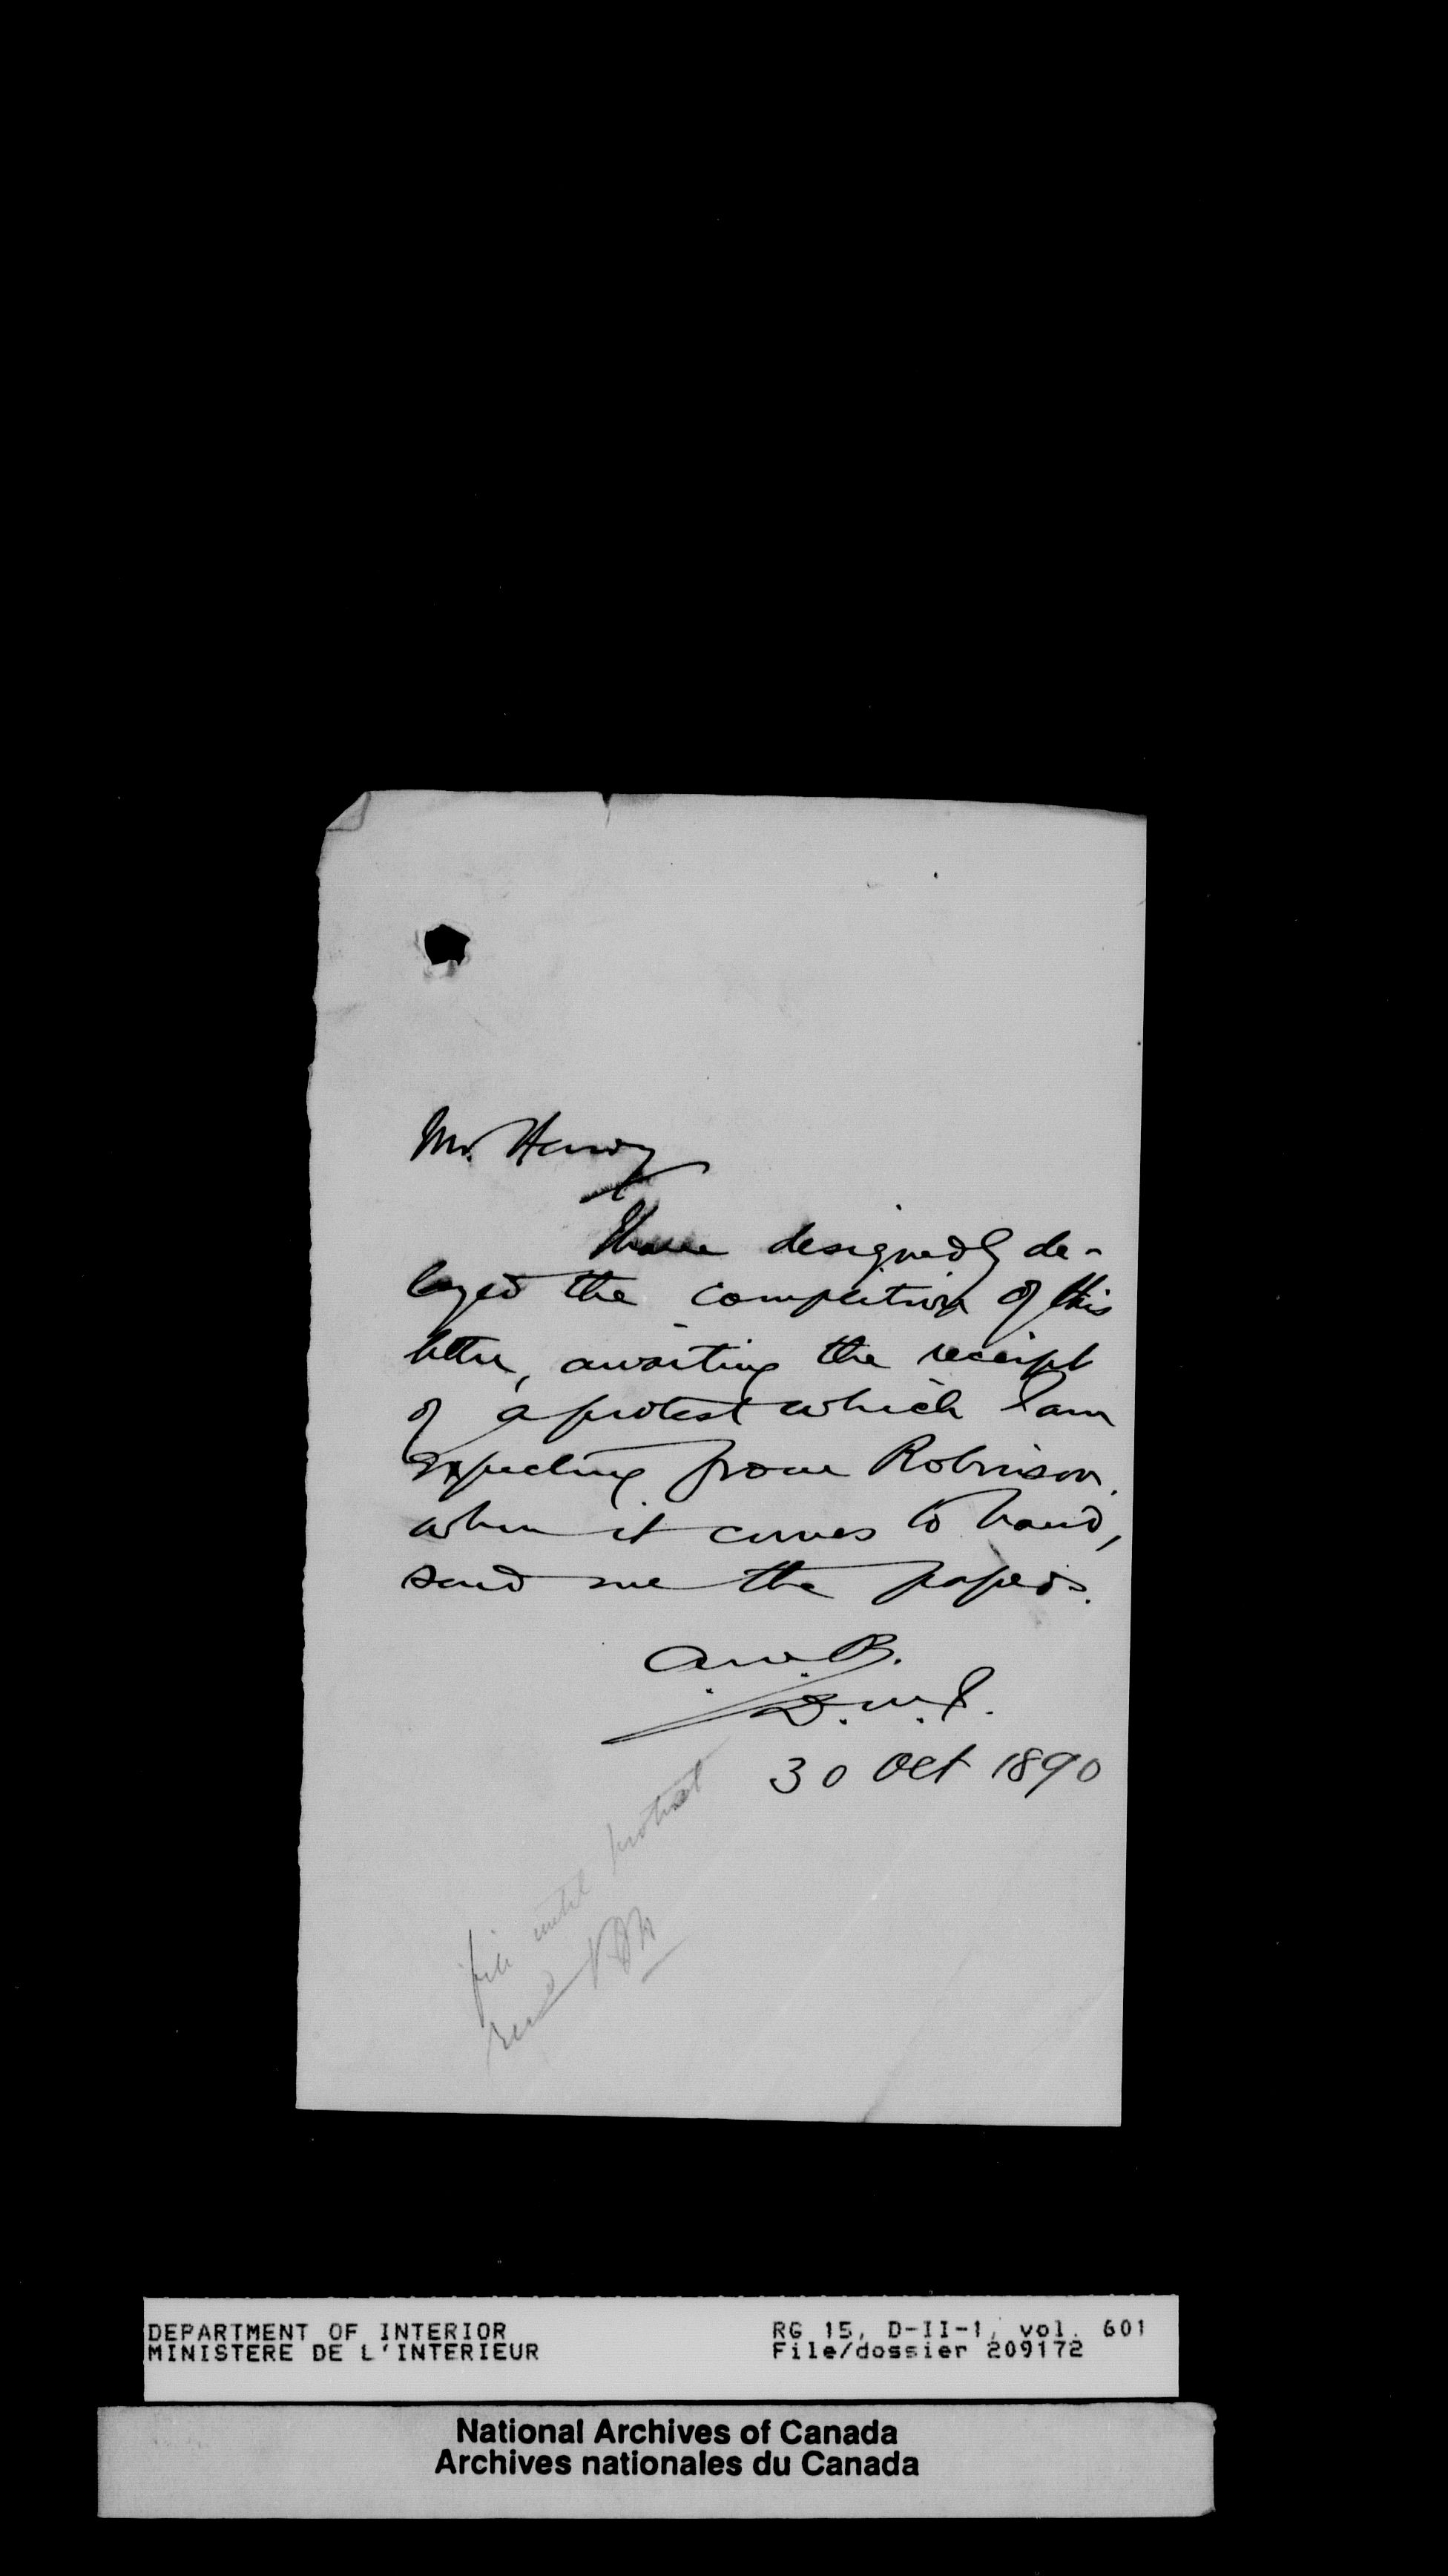 Mr. Henry
I have designedly de-
layed the completion of this
letter, awaiting the receipt
of a protest which I am
expecting from Robinson.
when it comes to hand,
send me the papers.
A.M.B.
30 Oct 1890
file until protest
DEPARTMENT OF INTERIOR
MINISTERE DE L'INTERIEUR
RG 15, D-II-1, vol. 601
File/dossier 209172
National Archives of Canada
Archives nationales du Canada